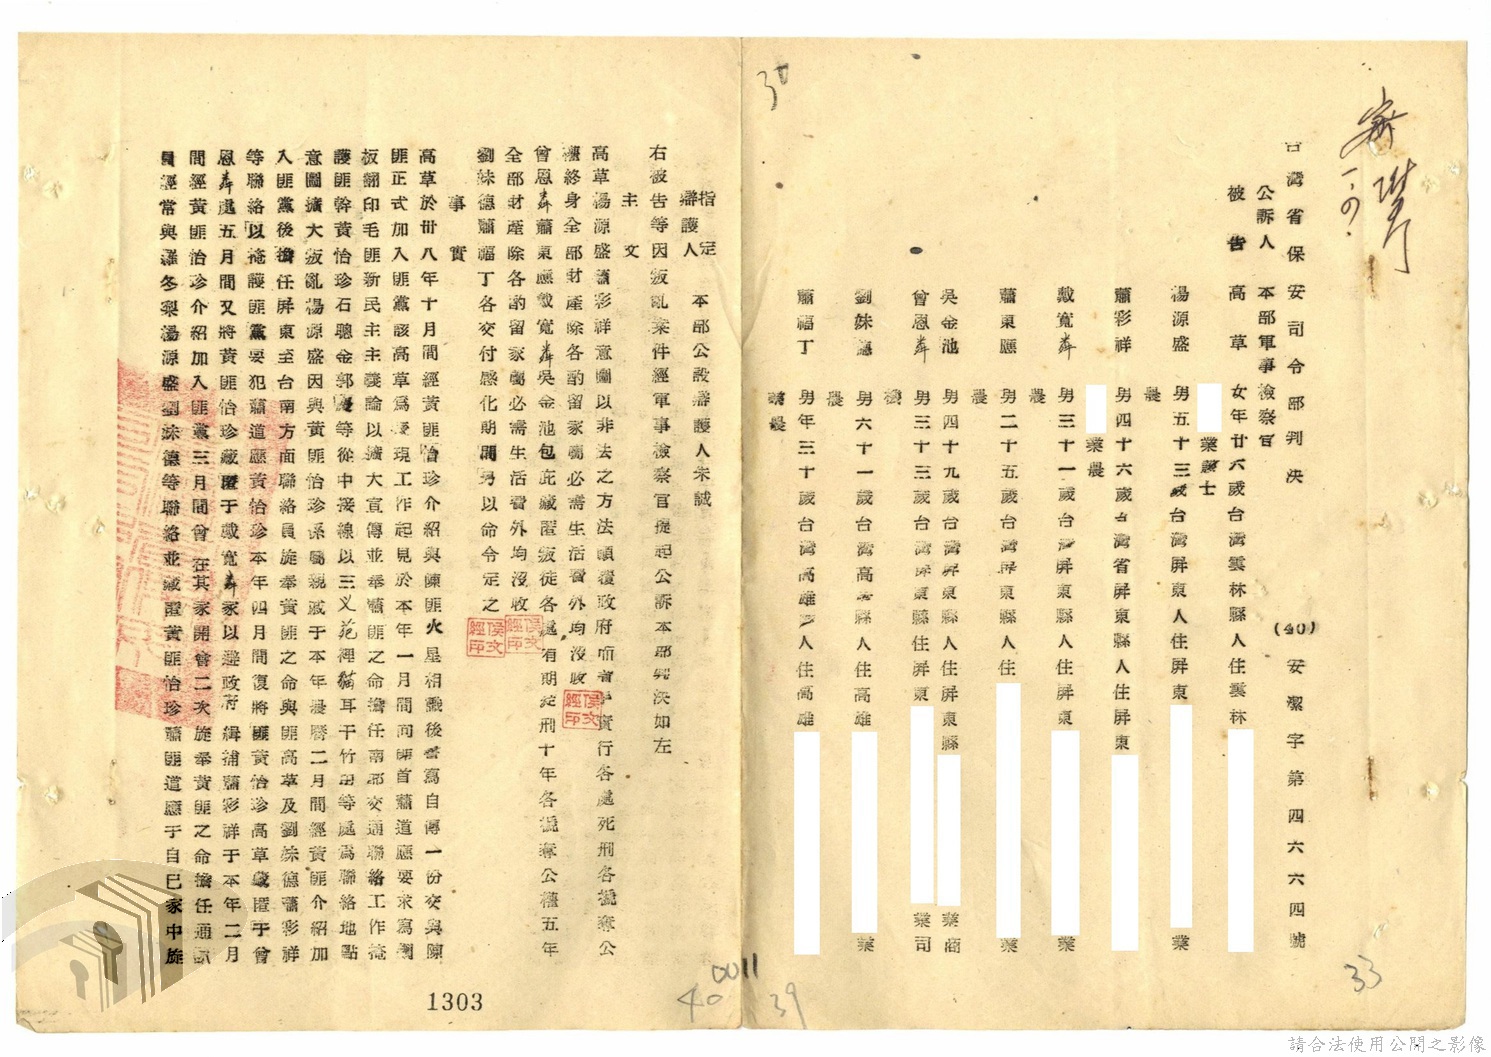 台灣省保安司令部判決
(40)安潔字第四六六四號
公訴人 本部軍事檢察官
被告 高草 女年廿六歲台灣雲林縣人住雲林
業護士
楊源盛 男五十三歲台灣屏東人住屏東 業
農
蕭彩祥 男四十六歲台灣省屏東縣人住屏東
業農
戴寬 男三十一歲台灣屏東縣人住屏東 業
農
蕭東應 男二十五歲台灣屏東縣人住 業
農
吳金池 男四十九歲台灣屏東縣人住屏東縣 業商
曾恩 男三十三歲台灣屏東縣住屏東 業司
機
劉妹德 男六十一歲台灣高雄縣人住高雄 業
農
蕭福丁 男年三十歲台灣高雄 人住高雄
業農
指定辯護人 本部公設辯護人朱誠
右被告等因叛亂案件經軍事檢察官提起公訴本部判決如左
主文
高草楊源盛蕭彩祥意圖以非法之方法顛覆政府而著手實行各處死刑各褫奪公
權終身全部財產除各酌留家屬必需生活費外均沒收
曾恩 蕭東應戴寬 吳金池包庇藏匿叛徒各處有期徒刑十年各褫奪公權五年
全部財產除各酌留家屬必需生活費外均沒收
劉妹德蕭福丁各交付感化期間另以命令定之
事實
高草於卅八年十月間經黃匪怡珍介紹與陳匪火星相識後書寫自傳一份交與陳
匪正式加入匪黨該高草為表現工作起見於本年一月間向匪首蕭道應要求寫鋼
板翻印毛匪新民主主義論以擴大宣傳並奉蕭匪之命擔任南部交通聯絡工作掩
護匪幹黃怡珍石聰金郭 等從中接線以三义苑裡貓耳干竹田等處為聯絡地點
意圖擴大叛亂楊源盛因與黃匪怡珍係屬親戚于本年農曆二月間經黃匪介紹加
入匪黨後擔任屏東至台南方面聯絡員旋奉黃匪之命與匪高草及劉妹德蕭彩祥
等聯絡以掩護匪黨要犯蕭道應黃怡珍本年四月間復將匪黃怡珍高草藏匿于曾
恩 處五月間又將黃匪怡珍藏匿于戴寬 家以避政府緝捕蕭彩祥于本年二月
間經黃匪怡珍介紹加入匪黨三月間曾在其家開會二次旋奉黃匪之命擔任通訊
員經常與羅冬梨楊源盛劉妹德等聯絡並藏匿黃匪怡珍蕭匪道應于自己家中旋
侯文經印
侯文經印
侯文經印
1303
0011
40
39
33
請合法使用公開之影像